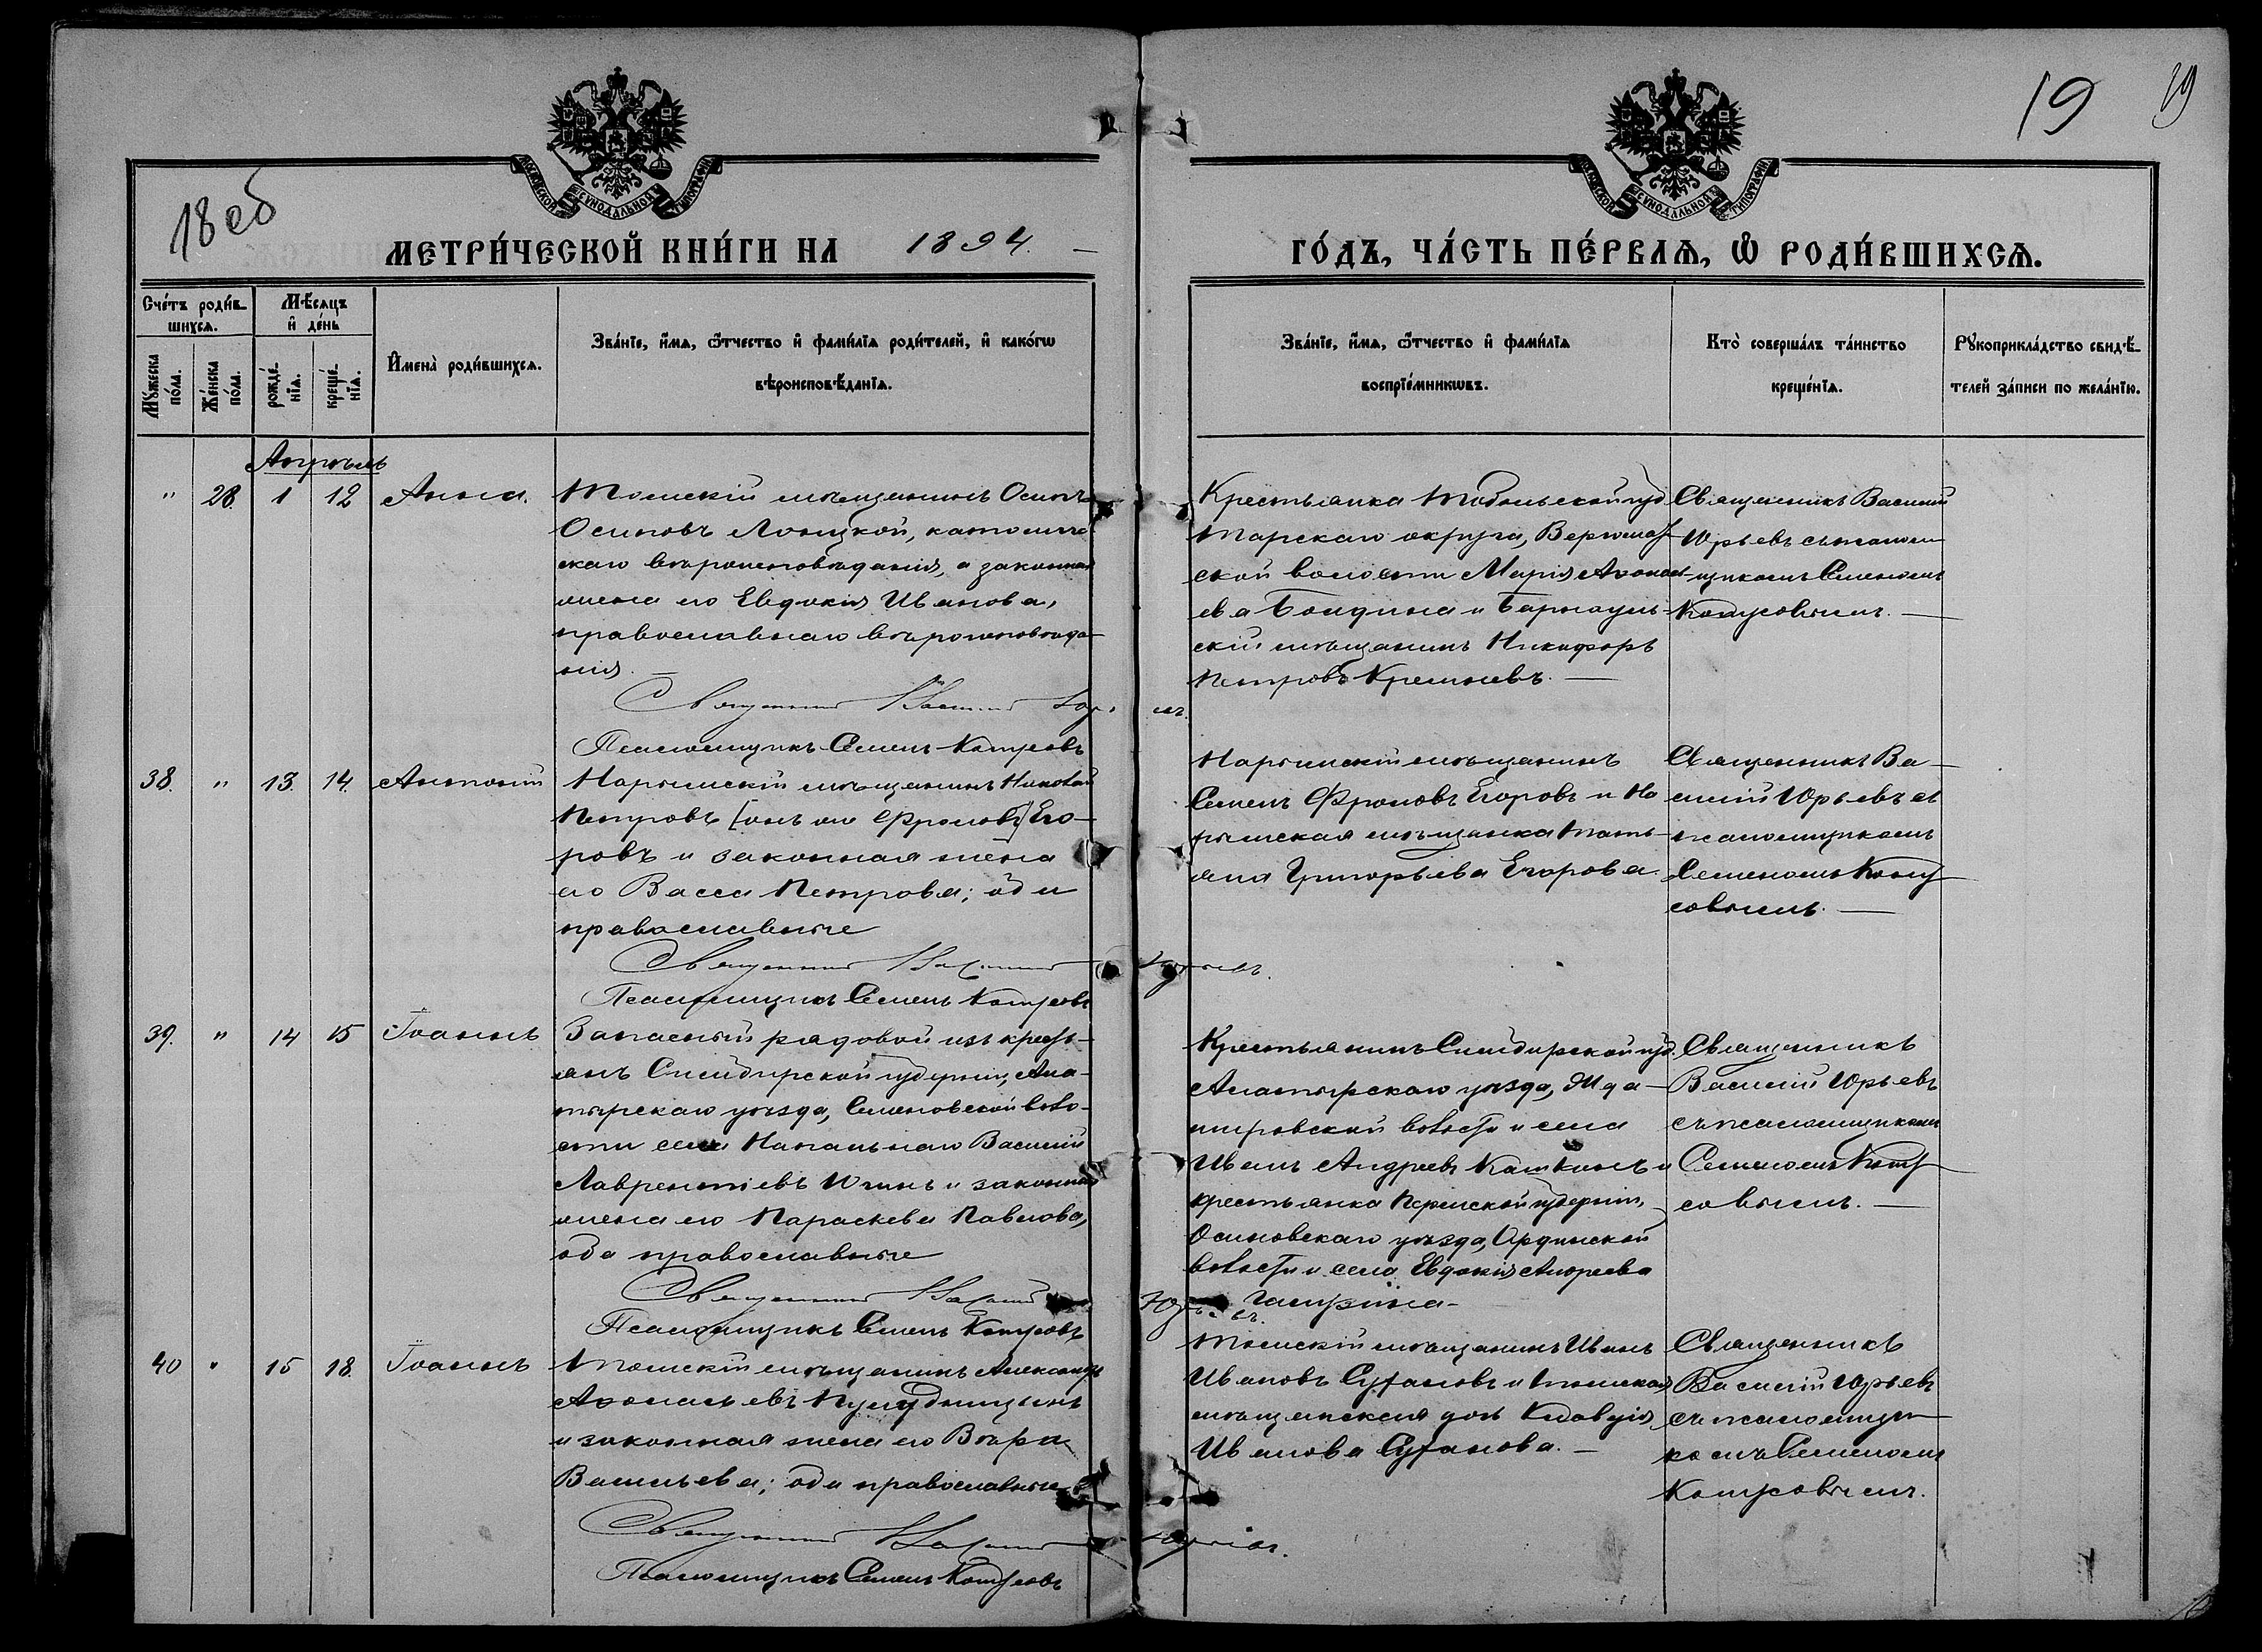 19 19
18 об
МОСКОВСКОЙ СѴНОДАЛЬНОЙ ТИПОГРАФІИ
МОСКОВСКОЙ СѴНОДАЛЬНОЙ ТИПОГРАФІИ
МЕТРИ́ЧЕСКОЙ КНИ́ГИ НА 1894. —
ГО́ДЪ, ЧА́СТЬ ПЕ́РВАѦ, Ѡ РОДИ́ВШИХСѦ.
Сче́тъ роди́в-
шихсѧ.
Мꙋ́жеска по́ла.
Же́нска по́ла.
Мѣ́сѧцъ
и де́нь
рожде́-
нїѧ.
креще́-
нїѧ.
И҆мена̀ роди́вшихсѧ.
Зва́нїе, и҆́мѧ, ѻ҆́тчество и҆ фами́лїѧ роди́телей, и҆ како́гѡ
вѣроисповѣ́данїѧ.
Зва́нїе, и҆́мѧ, ѻ҆́тчество и҆ фами́лїѧ
воспрїе́мникѡвъ.
Кто̀ соверша́лъ та́инство
креще́нїѧ.
Рꙋкоприкла́дство свидѣ́-
телей за́писи по жела́нїю.
Апрѣль
" 28. 1 12 Анна.
Томскій мѣщанинъ Осипъ
Осиповъ Лоицкой, католиче
скаго вѣроисповѣданія, а законная
жена его Евдокія Иванова,
православнаго вѣроисповѣда-
нія. —
Священникъ Василій Юрьевъ
Псаломщикъ Семенъ Котусовъ
Крестьянка Тобольской губ
Тарскаго округа,
ской волости Марія Афонась
ева Болдина и Барнауль-
скій мѣщанинъ Никифоръ
Петровъ Кремневъ. —
Священникъ Василій
Юрьевъ съ псалом-
щикомъ Семеномъ
Котусовымъ. —
38. " 13. 14. Антоній
Нарымскій мѣщанинъ Николай
Петровъ [онъ же Фроловъ] Его-
ровъ и законная жена
его Васса Петрова; оба
православные
Священникъ Василій Юрьевъ.
Псаломщикъ Семенъ Котусовъ
Нарымскій мѣщанинъ
Семенъ Фроловъ Егоровъ и На
рымская мѣщанка Тать-
яна Григорьева Егорова.
Священникъ Ва-
силій Юрьевъ съ
псаломщикомъ
Семеномъ Коту
совымъ. —
39. " 14 15 Іоаннъ
Запасный рядовой изъ кресть-
янъ Симбирской губерніи, Ала-
тырскаго уѣзда, Семеновской воло-
сти села Напальнаго Василій
Лаврентіевъ Югинъ и законная
жена его Параскева Павлова,
оба православные
Священникъ Василій Юрьевъ.
Псаломщикъ Семенъ Котусовъ
Крестьянинъ Симбирской губ.
Алатырскаго уѣзда, Жда-
мировской волости и села
Иванъ Андреевъ Кашкинъ и
крестьянка Пермской губерніи,
Осиновскаго уѣзда, Ординской
волости и села Евдокія Андреева
Священникъ
Василій Юрьевъ
съ псаломщикомъ
Семеномъ Коту
совымъ. —
40 " 15 18. Іоаннъ
Томскій мѣщанинъ Александръ
Афонасьевъ
и законная жена его Вѣра
Васильева; оба православные
Священникъ Василій Юрьевъ.
Псаломщикъ Семенъ Котусовъ
Томскій мѣщанинъ Иванъ
Ивановъ Сухановъ и томская
мѣщанская дочь Клавдія
Иванова Суханова. —
Священникъ
Василій Юрьевъ
съ псаломщи-
комъ Семеномъ
Котусовымъ.